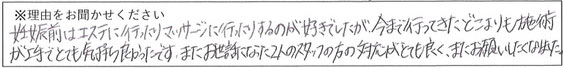 ※理由をお聞かせください
妊娠前はエステに行ったりマッサージに行ったりするのが好きでしたが、今まで行ってきたどこよりも施術
が上手でとても気持ち良かったです。またお世話になった2人のスタッフの方の対応がとても良く、またお願いしたくなりました。